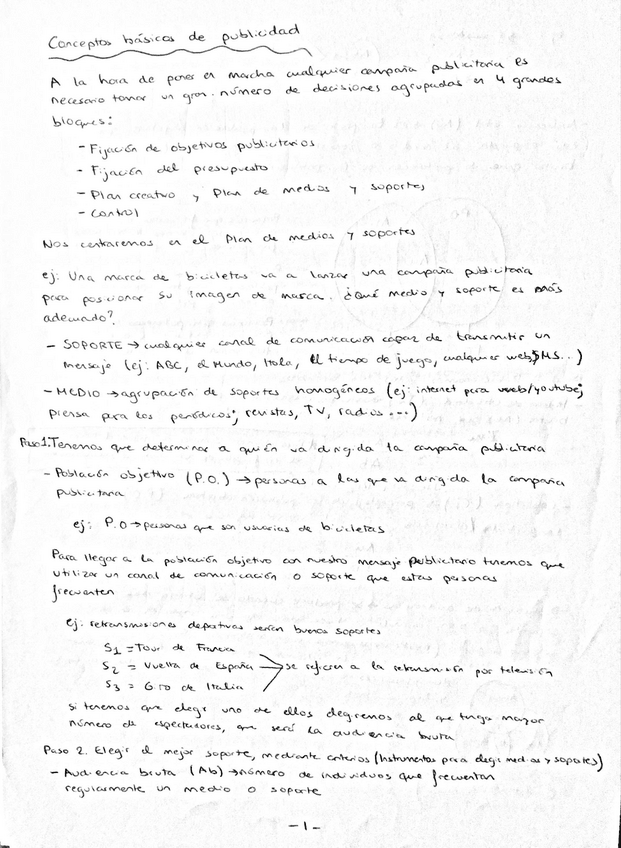 Conceptos básicos de publicidad
A la hora de poner en marcha cualquier campaña publicitaria es
necesario tomar un gran número de decisiones agrupadas en 4 grandes
bloques:
- Fijación de objetivos publicitarios
- Fijación del presupuesto
- Plan creativo y Plan de medios y soportes
- Control
Nos centraremos en el Plan de medios y soportes
ej: Una marca de bicicletas va a lanzar una campaña publicitaria
para posicionar su imagen de marca. ¿Qué medio y soporte es más
adecuado?
- SOPORTE → cualquier canal de comunicación capaz de transmitir un
mensaje (ej: ABC, el Mundo, Hola, El tiempo de juego, cualquier web, SMS...)
- MEDIO → agrupación de soportes homogéneos (ej: internet para web/youtube;
prensa para los periódicos; revistas, TV, radios ...)
Paso 1. Tenemos que determinar a quién va dirigida la campaña publicitaria
- Población objetivo (P.O.) → personas a las que va dirigida la campaña
publicitaria
ej: P.O → personas que son usuarias de bicicletas
Para llegar a la población objetivo con nuestro mensaje publicitario tenemos que
utilizar un canal de comunicación o soporte que estas personas
frecuenten
ej: retransmisiones deportivas serían buenos soportes
S1 = Tour de Francia
S2 = Vuelta de España → se refieren a la retransmisión por televisión
S3 = Giro de Italia
Si tenemos que elegir uno de ellos elegiremos al que tenga mayor
número de espectadores, que será la audiencia bruta
Paso 2. Elegir el mejor soporte, mediante criterios (Instrumentos para elegir medios y soportes)
- Audiencia bruta (Ab) → número de individuos que frecuentan
regularmente un medio o soporte
- 1 -